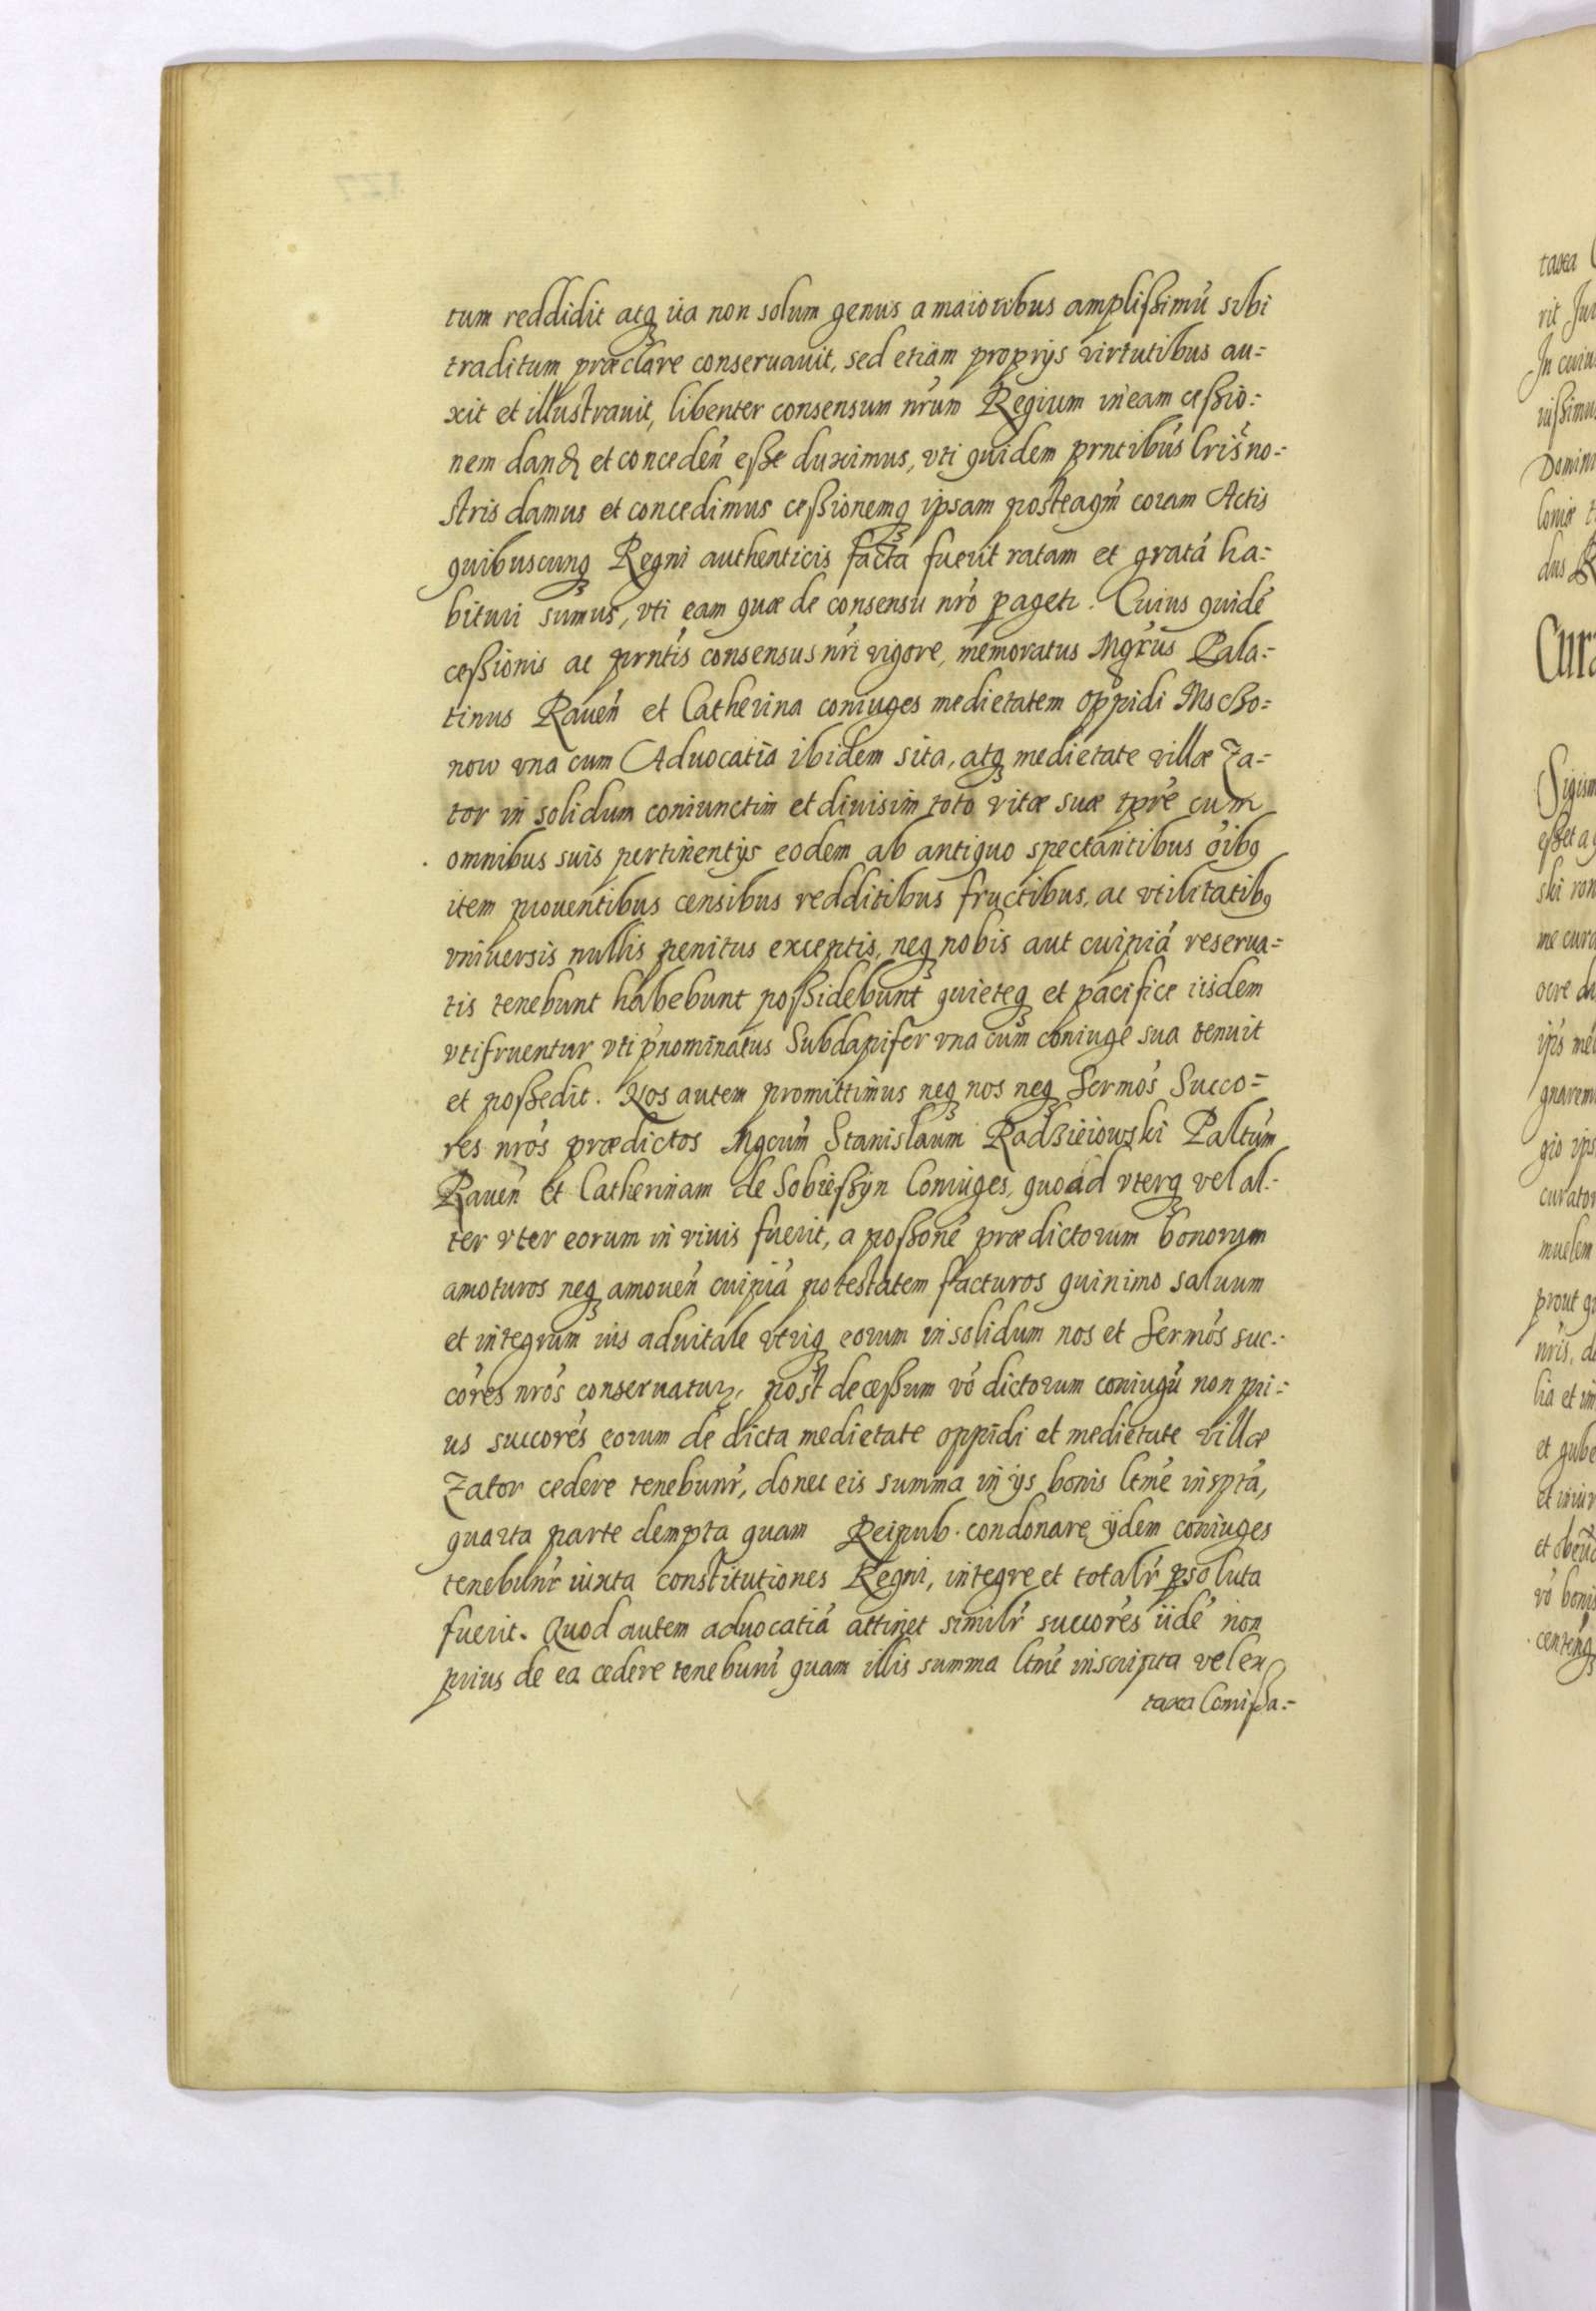 tum reddidit atq3 ita non solum genus a maioribus amplißimũ sibi
traditum præclare conseruauit, sed etiam proprijs virtutibus au=
xit et illustrauit, libenter consensum nr̃um Regium in eam ceßio=
nem dand et conceden̄ eße duximus, vti quidem prñtibus lris̃ no=
stris damus et concedimus ceßionemq3 ipsam posteaqm̃ coram Actis
quibuscunq3 Regni authenticis facta fuerit ratam et gratã ha=
bituri sumus, vti eam quæ de consensu nrõ
Cuius quidẽ
ceßionis ac prñtis consensus nr̃i vigore, memoratus Mgcus Pala=
tinus Rauen̄ et Catherina coniuges medietatem oppidi Mscßo=
now vna cum Aduocatia ibidem sita, atq3 medietate villæ Za=
tor in solidum coniunctim et diuisim toto vitæ suæ tpr̃e cum
omnibus suis pertinentijs eodem ab antiquo spectantibus oĩbq
item prouentibus censibus redditibus fructibus, ac vtilitatibq
vniuersis nullis penitus exceptis, neq3 nobis aut cuipiã reserua=
tis tenebunt habebunt poßidebunt quieteq3 et pacifice iisdem
vtifruentur vti p̃nominatus Subdapifer vna cum coniuge sua tenuit
et poßedit. Nos autem promittimus neq3 nos neq3 Sermos̃ Succo=
res nrõs prædictos Mgcum̃ Stanislaum Radzieiowski Paltum̃
Rauen̄ et Catherinam de Sobießyn Coniuges, quoad vterq3 vel al=
ter vter eorum in viuis fuerit, a poßonẽ prædictorum bonorum
amoturos neq3 amouen̄ cuipiã potestatem facturos quinimo saluum
et integrum ius aduitale vtriq3 eorum in solidum nos et Sermos̃ suc=
cores̃ nrõs conseruatur, post deceßum võ dictorum coniugũ non pri=
us succores̃ eorum de dicta medietate oppidi et medietate villæ
Zator cedere tenebunr̃, donec eis summa in ijs bonis ltmẽ insptã,
quarta parte dempta quam Reipub. condonare ijdem coniuges
tenebunr̃ iuxta constitutiones Regni, integre et totalr̃ psoluta
fuerit. Quod autem aduocatiã attinet similr̃ succorẽs iidẽ non
prius de ea cedere tenebunr̃ quam illis summa ltmẽ inscripta vel ex
taxa Comißa=